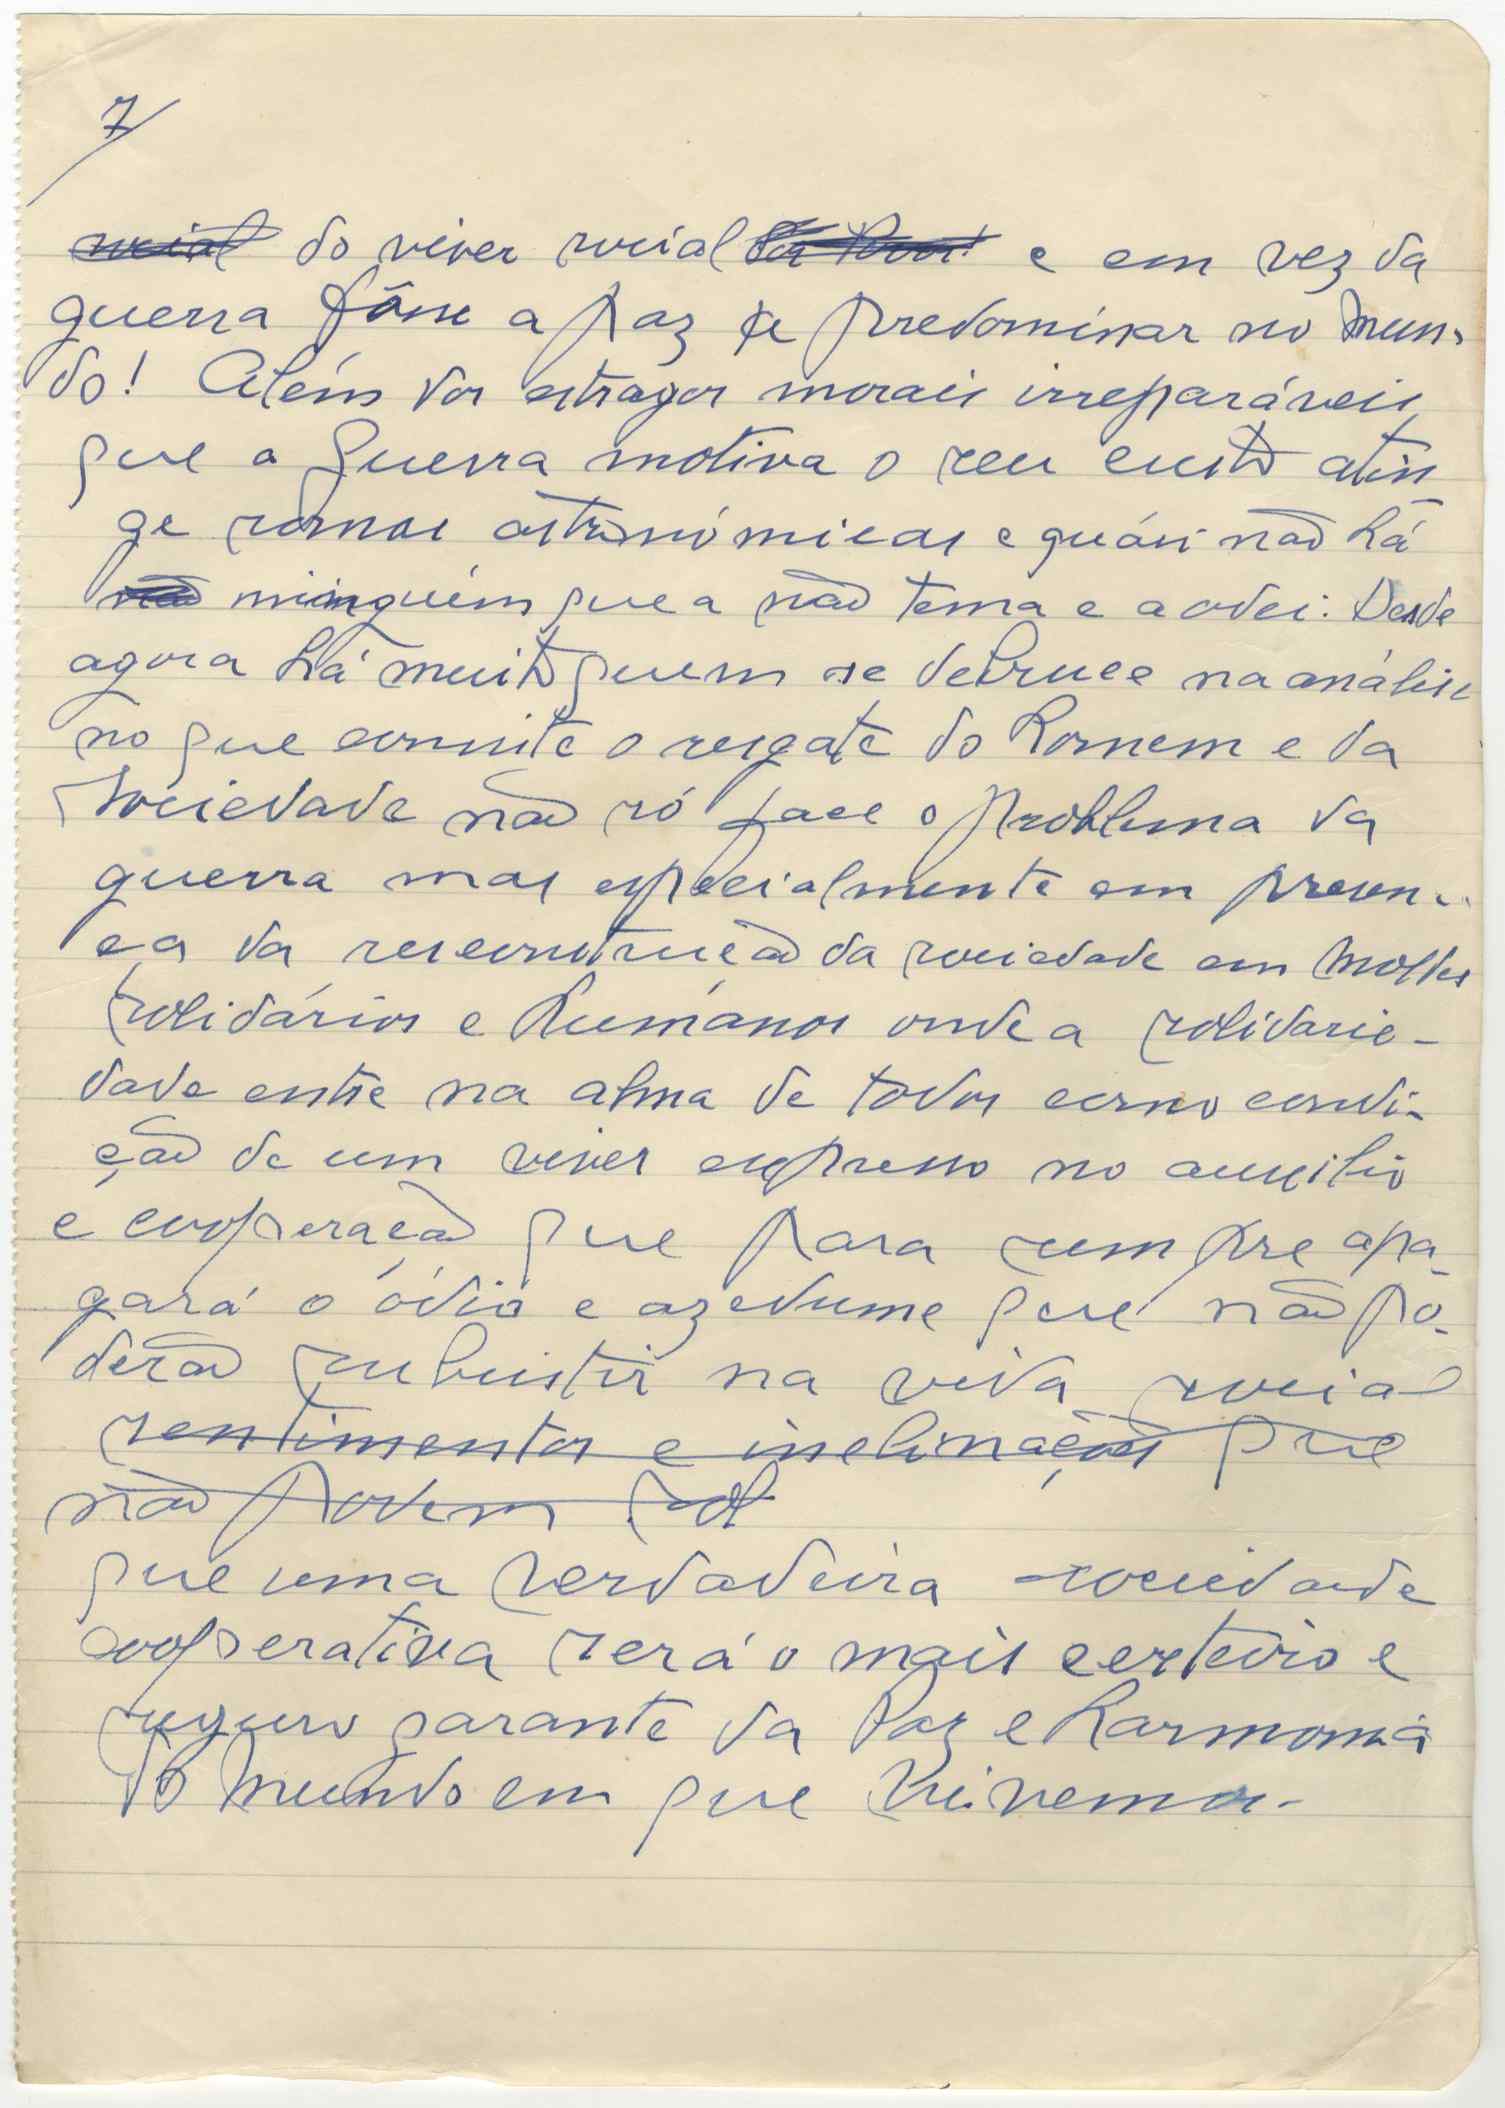 7/
social do viver social dos Povos! e em vez da
guerra fôsse a paz a predominar no Mun-
do! Além dos estragos morais irreparáveis
que a Guerra motiva o seu custo atin
ge somas astronómicas e quási não há
não ninguém que a não tema e a odei. Desde
agora há muito quem se debruce na análise
no que consiste o resgate do Homem e da
Sociedade não só face o problema da
guerra mas especialmente em presen-
ça da reconstrução da sociedade em moldes
solidários e humanos onde a solidarie-
dade entre na alma de todos como condi-
ção de um viver expresso no auxilio
e cooperação que para sempre apa-
gará o ódio e azedume que não po-
derão subsistir na vida social
sentimentos e inclinações que
não podem sol
que uma verdadeira sociedade
cooperativa será o mais certeiro e
seguro garante da Paz e harmonia
do Mundo em que Vivemos-